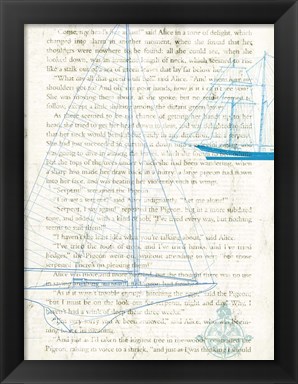 "Come, my head's free at last!" said Alice in a tone of delight, which
changed into alarm in another moment, when she found that her
shoulders were nowhere to be found: all she could see, when she
looked down, was an immense length of neck, which seemed to rise
like a stalk out of a sea of green leaves that lay far below her.
"What can all that green stuff be?" said Alice. "And where have my
shoulders got to? And oh, my poor hands, how is it I can't see you?"
She was moving them about as she spoke, but no result seemed to
follow, except a little shaking among the distant green leaves.
As there seemed to be no chance of getting her hands up to her
head, she tried to get her head down to them, and was delighted to find
that her neck would bend about easily in any direction, like a
She had just succeeded in curving it down into a graceful
going to dive in among the leaves, which she found to be
but the tops of the trees under which she had been wandering, when
a sharp hiss made her draw back in a hurry: a large pigeon had flown
into her face, and was beating her violently with its wings.
"Serpent!" screamed the Pigeon.
"I'm not a serpent!" said Alice indignantly.
"Serpent, I say again!" repeated the Pigeon, but in a more subdued
tone, and added, with a kind of sob, "I've tried every way, but nothing
seems to suit them!"
"I haven't the least idea what you're talking about," said Alice.
"I've tried the roots of trees, and I've tried banks, and I've tried
hedges," the Pigeon went on, without attending to her; "but those
serpents! There's no pleasing them!"
Alice was more and more puzzled, but she thought there was no use
in saying anything more till the Pigeon had finished.
"As if it wasn't trouble enough hatching the eggs," said the Pigeon,
"but I must be on the look-out for serpents, night and day! Why, I
haven't had a wink of sleep these three weeks!"
"I'm very sorry you've been annoyed," said Alice, who was
beginning to see its meaning.
"And just as I'd taken the highest tree in the wood," continued the
Pigeon, raising its voice to a shriek, "and just as I was thinking I should